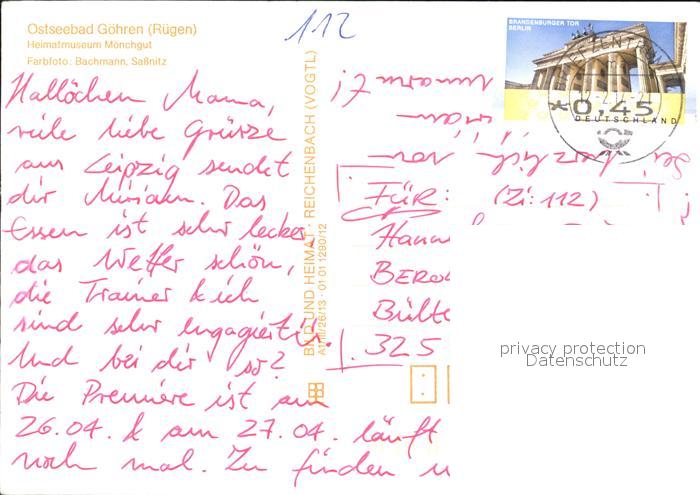 Ostseebad Göhren (Rügen)
Heimatmuseum Mönchgut
Farbfoto: Bachmann, Saßnitz
112
Hallöchen Mama,
viele liebe Grüsse
aus Leipzig sendet
dir Miriam. Das
Essen ist sehr lecker,
das Wetter schön,
die Trainer & ich
sind sehr engagiert.
Und bei dir so?
Die Premiere ist am
26.04. & am 27.04. läuft
noch mal. Zu finden
BILD UND HEIMAT · REICHENBACH (VOGTL)
A1/III/26/13 · 01 01 1290/12
BRANDENBURGER TOR
BERLIN
*0,45
DEUTSCHLAND
Sei herzlich von
FÜR: (Zi: 112)
Hann
BERO
Bülte
325
privacy protection
Datenschutz